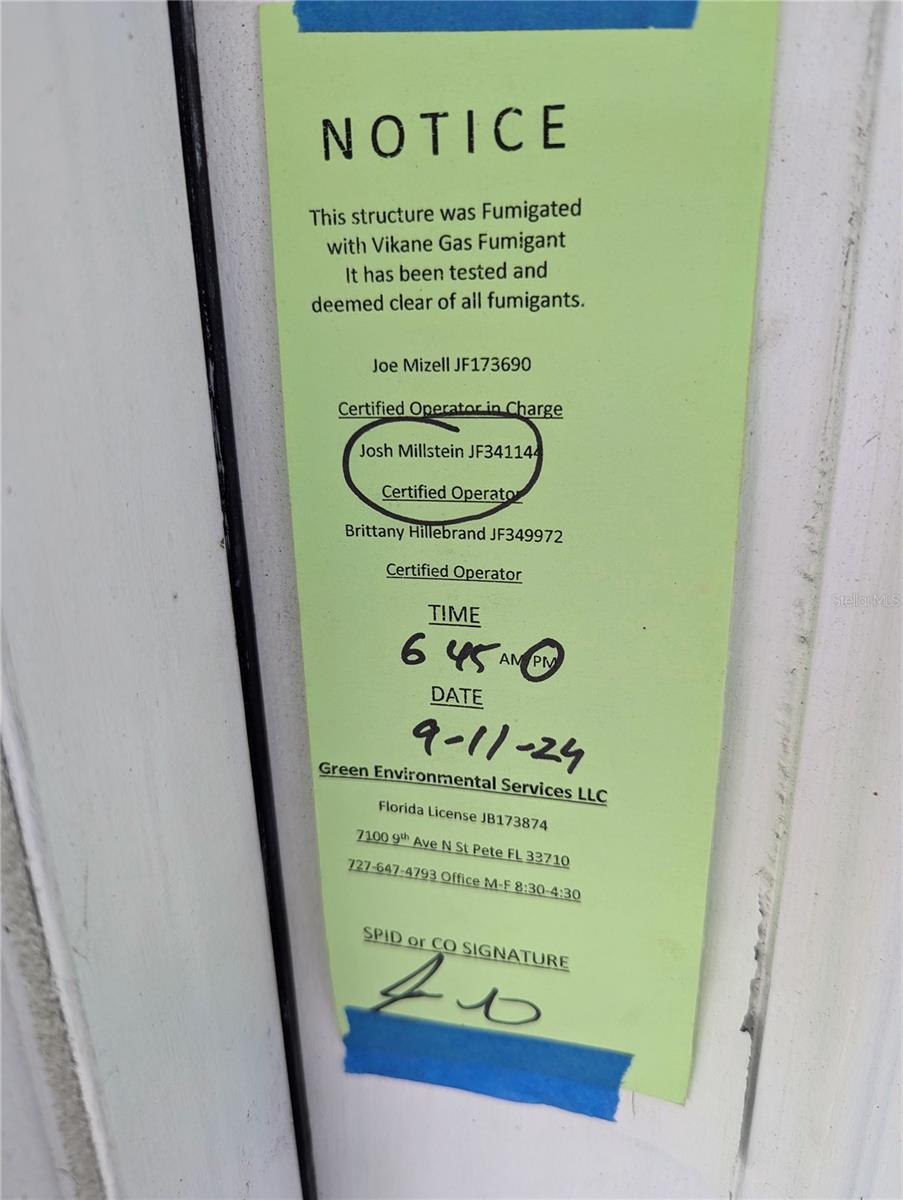 NOTICE
This structure was Fumigated
with Vikane Gas Fumigant
It has been tested and
deemed clear of all fumigants.
Joe Mizell JF173690
Certified Operator in Charge
Josh Millstein JF341144
Certified Operator
Brittany Hillebrand JF349972
Certified Operator
TIME
6 45 AM/PM
DATE
9-11-24
Green Environmental Services LLC
Florida License JB173874
7100 9th Ave N St Pete FL 33710
727-647-4793 Office M-F 8:30-4:30
SPID or CO SIGNATURE
StellarMLS